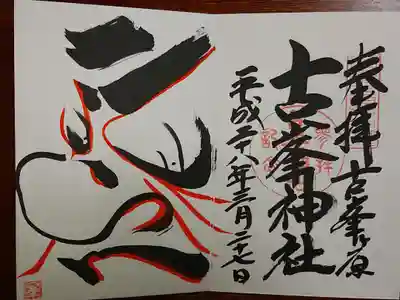 奉拝 古峯ヶ原
古峯神社
平成二十八年三月二十七日